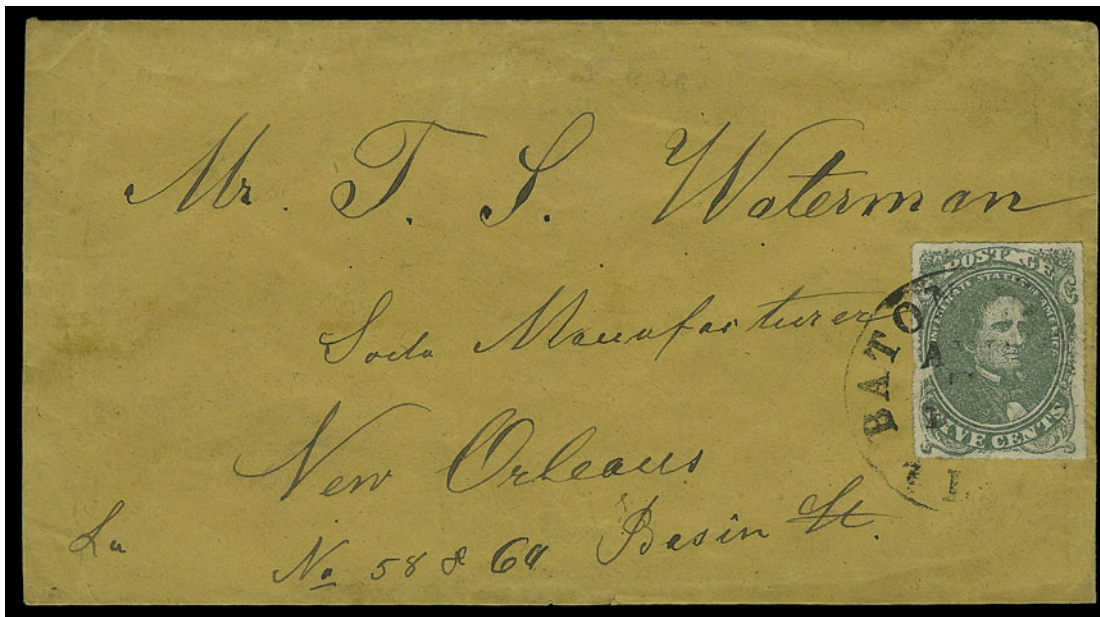 Mr. T. S. Waterman
Soda Manufacturer
New Orleans
La
No 58 & 60 Basin St.
POSTAGE
CONFEDERATE STATES OF AMERICA
FIVE CENTS
BATO
A